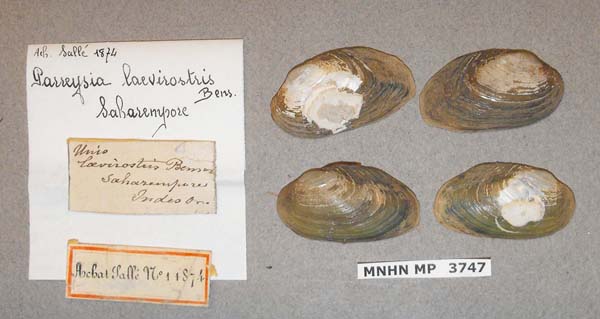 Ach. Sallé 1874
Parreysia laevirostris
Bens.
Saharempore
Unio
lævirostris Benson
Saharempore
Indes Or.
Achat Sallé No 1 1874
MNHN MP 3747